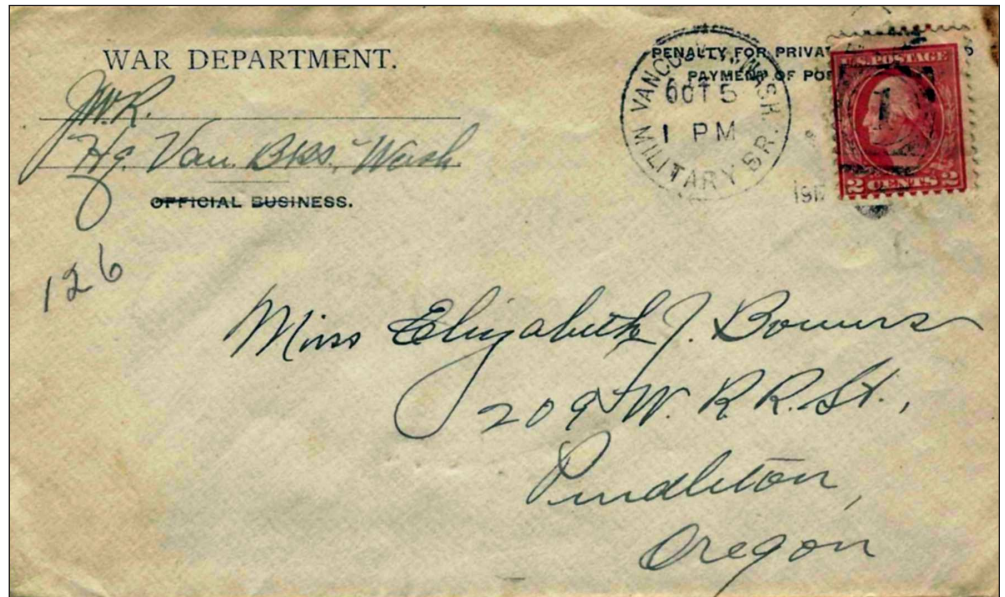 WAR DEPARTMENT.
J.W.R.
Hq. Van. Bks. Wash.
OFFICIAL BUSINESS.
126
PENALTY FOR PRIVAT
PAYMENT OF POS
VANCOUVER, WASH.
OCT 5
1 PM
MILITARY BR.
191
U.S. POSTAGE
1
2 CENTS 2
Miss Elizabeth J. Bowers
209 W. R.R. St.,
Pendleton,
Oregon